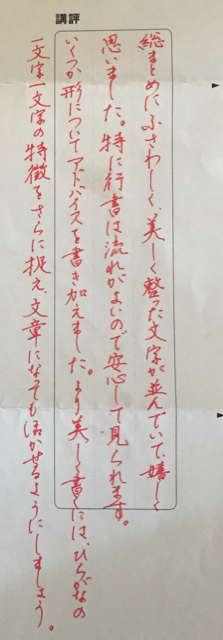 講評
総まとめにふさわしく、美しく整った文字が並んでいて、嬉しく
思いました。特に行書は流れがよいので安心して見られます。
いくつか形についてアドバイスを書き加えました。より美しく書くには、ひらがなの
一文字一文字の特徴をさらに捉え、文章になっても活かせるようにしましょう。